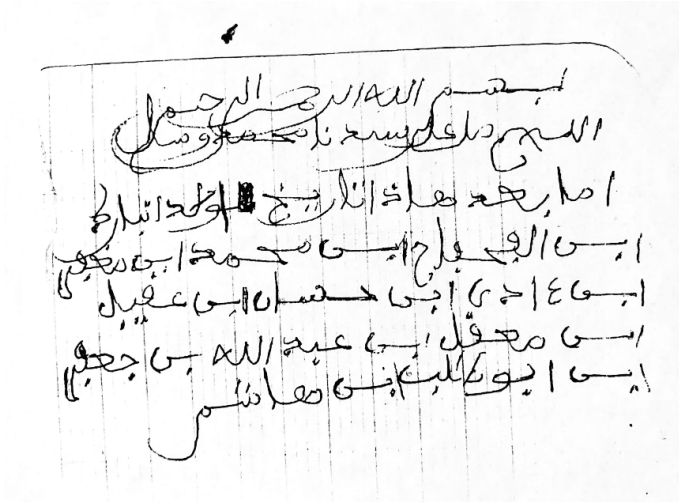 ابسم الله الرحمن الرحيم
اللهم صل على سيدنا محمد وسلم
اما بعد هاذ اتاريخ اولاد انبارك
ابن محمد ابن
ابن ابن حسان ابن عقيل
ابن معقل ابن عبد الله بن جعفر
ابن ابو طالب ابن هاشم